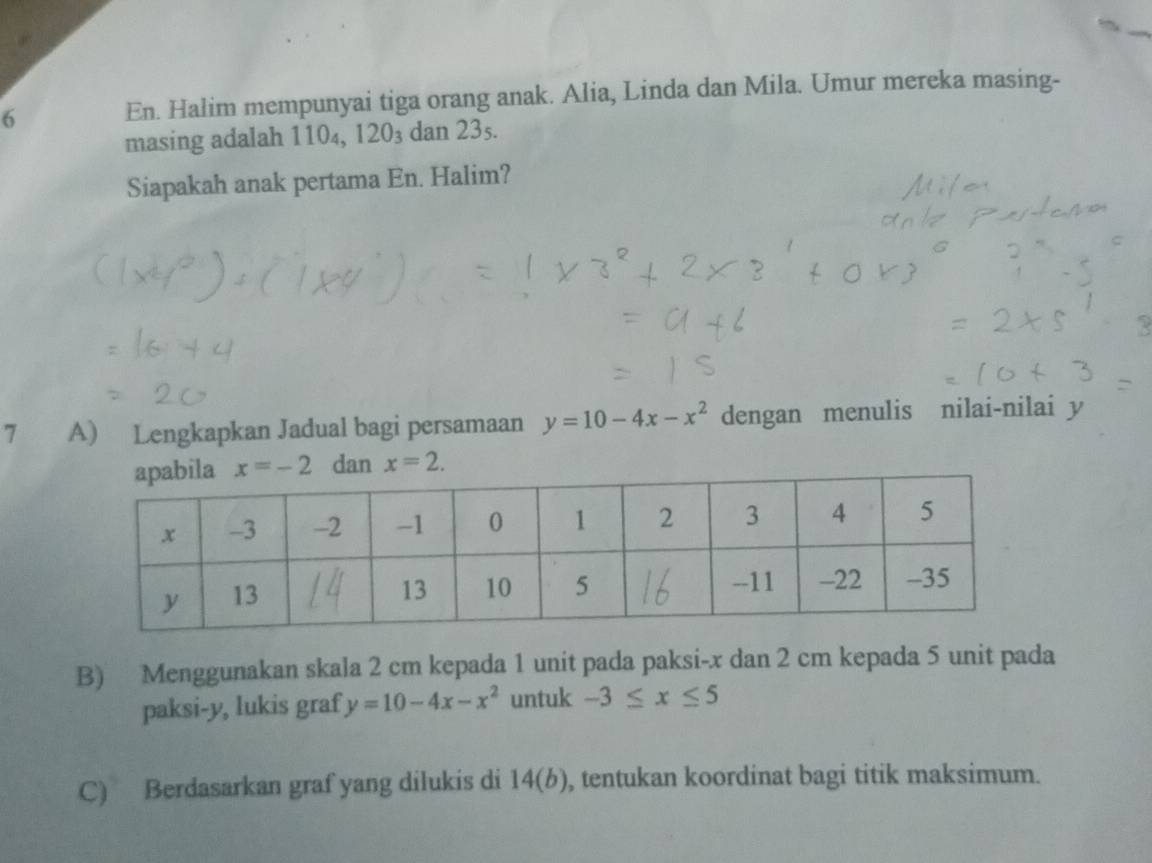 6 En. Halim mempunyai tiga orang anak. Alia, Linda dan Mila. Umur mereka masing-
masing adalah 110₄, 120₃ dan 23₅.
Siapakah anak pertama En. Halim?
Mila
= 1 x 3² + 2 x 3¹ + 0 x 3⁰
= 2 x 5¹
= 16 + 4
= 15
= 10 + 3 =
= 20
7 A) Lengkapkan Jadual bagi persamaan y = 10 – 4x – x² dengan menulis nilai-nilai y
apabila x = – 2 dan x = 2.
x –3 –2 –1 0 1 2 3 4 5
y 13 14 13 10 5 16 –11 –22 –35
B) Menggunakan skala 2 cm kepada 1 unit pada paksi-x dan 2 cm kepada 5 unit pada
paksi-y, lukis graf y = 10 – 4x – x² untuk –3 ≤ x ≤ 5
C) Berdasarkan graf yang dilukis di 14(b), tentukan koordinat bagi titik maksimum.